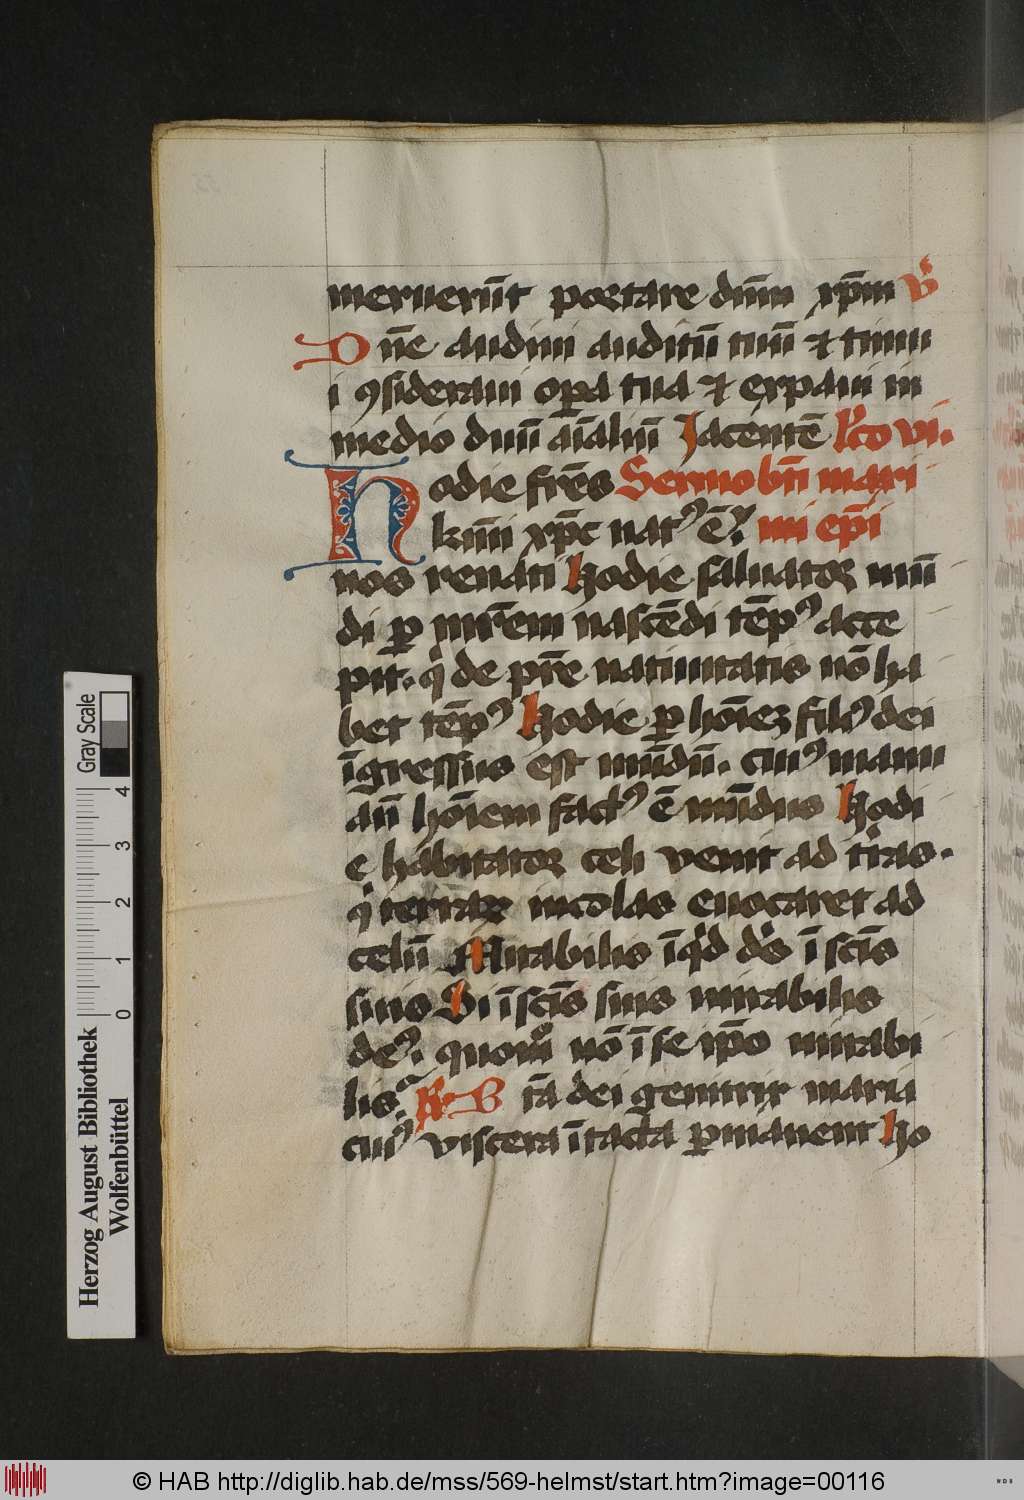 meruerūt poetare dn̄m xp̄m V̓
Dn̄e audiui auditū tuū ⁊ timui
i ꝯsideraui oꝑa tua ⁊ expaui in
medio duū aīaliū Jacentē Lc̓o vi.
Hodie frēs Sermo bt̄i mari
kmī xp̄c natꝰ ē⁊ mi ep̄i
nos renati Hodie saluatoꝝ mū
di ꝑ mr̄em nascēdi tēpꝰ acce
pit. qͥ de pr̄e natiuitatis nō ha
bet tēpꝰ Hodie ꝑ hoīeꝫ filiꝰ dei
īgressus est mūdū. cuiꝰ manu
an̄ hoīem factꝰ ē mūdus Hodi
e habitatoꝝ celi venit ad tr̓as.
qͥ terrae incolas euocaret ad
celū Mirabilis īqͥd dꝰs ī scīs
suis Si ī scīs suis mirabilis
deꝰ. quomͦ nō ī se ip̄o mirabi
lis. R̸ Btā dei genitrix maria
cuiꝰ viscera ītacta ꝑmanent Ho
Herzog August Bibliothek
Wolfenbüttel
0 1 2 3 4
Gray Scale
© HAB http://diglib.hab.de/mss/569-helmst/start.htm?image=00116